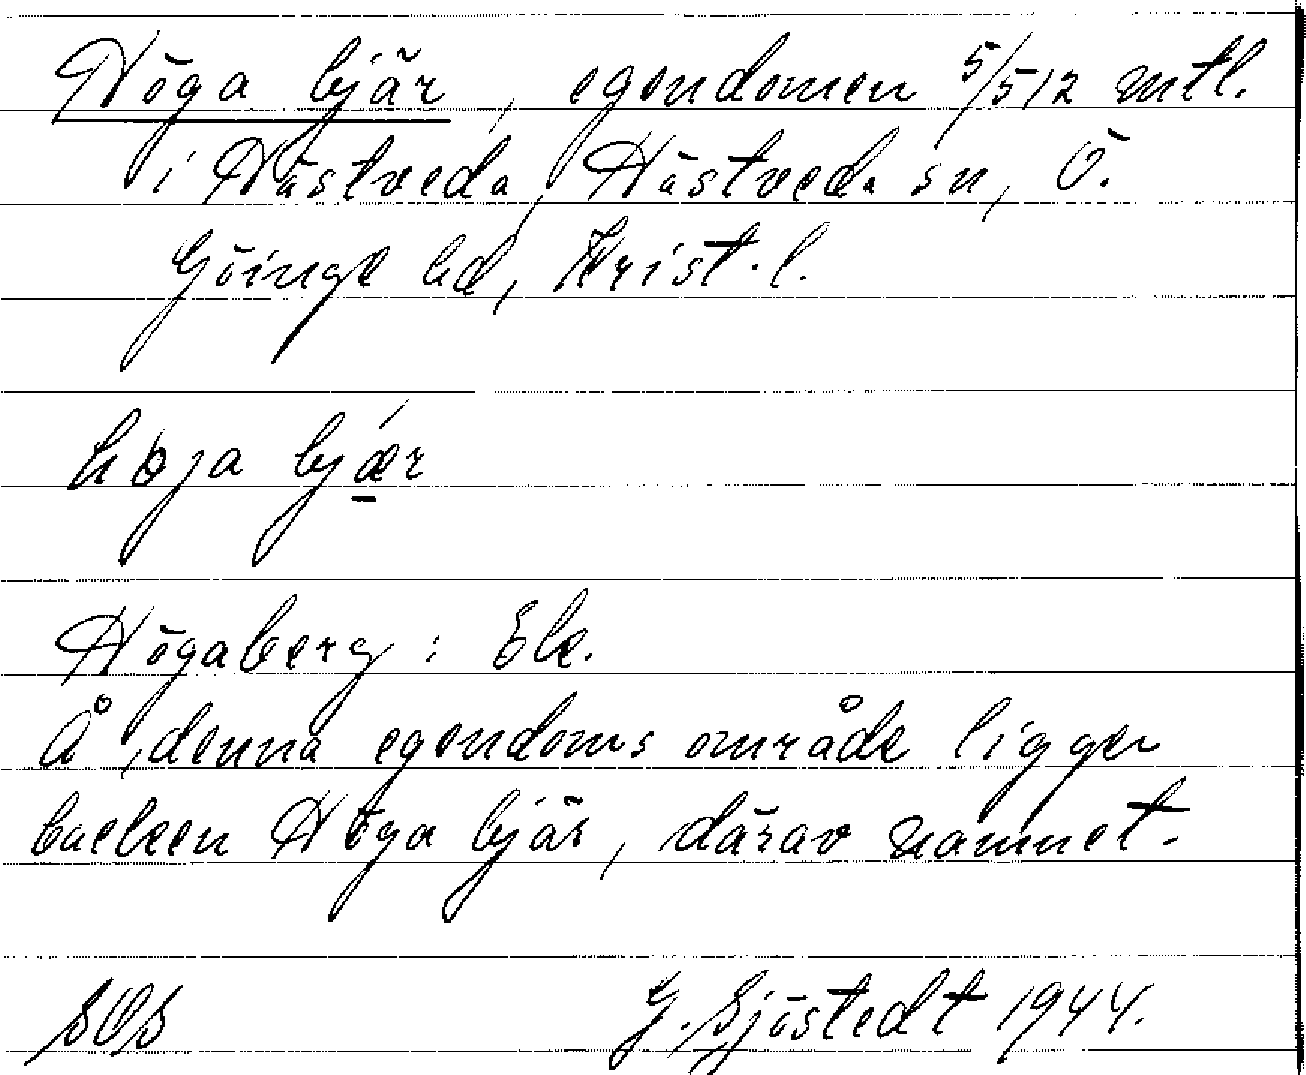 Höga bjär, egendomen 5/512 mtl.
i Hästveda, Hästveda sn, Ö.
Göinge hd, Krist. l.
høja bjǽr
Högaberg: Ek.
Å denna egendoms område ligger
backen Höga bjär, därav namnet.
SOS G. Sjöstedt 1944.